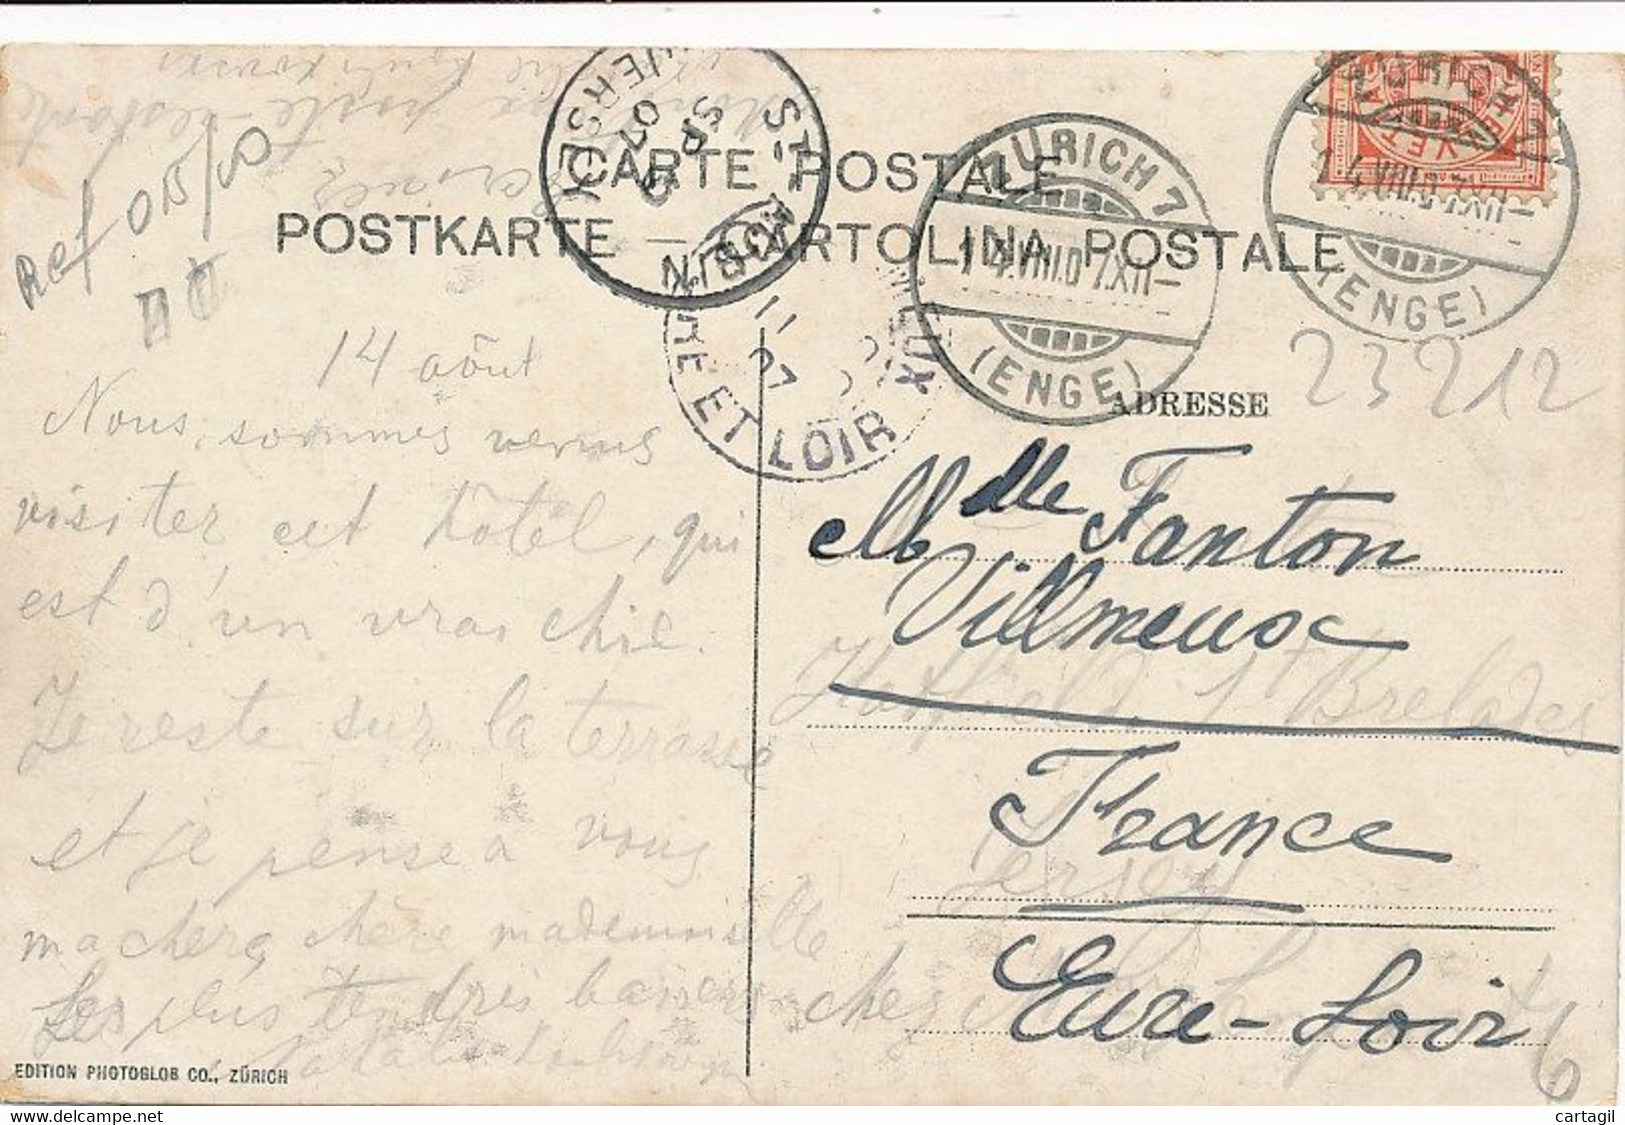 CARTE POSTALE
POSTKARTE — CARTOLINA POSTALE
ST-AUBIN
JERSEY
SP
07
ZÜRICH 7
14.VIII.07.XII—
(ENGE)
ZÜRICH 7
14.VIII.07.XII—
(ENGE)
ET LOIR
11
07
Ref 015/00
23212
poste-restante
14 août
Nous sommes venus
visiter cet hôtel, qui
est d'un vrai chic.
Je reste sur la terrasse
et je pense à vous
ma chère, chère mademoiselle
Les plus tendres baisers
ADRESSE
Mlle Fanton
Villmeuse
Hatfield St Brelades
France
Jersey
Eure-Loir
chez
EDITION PHOTOGLOB CO., ZÜRICH
cartagil